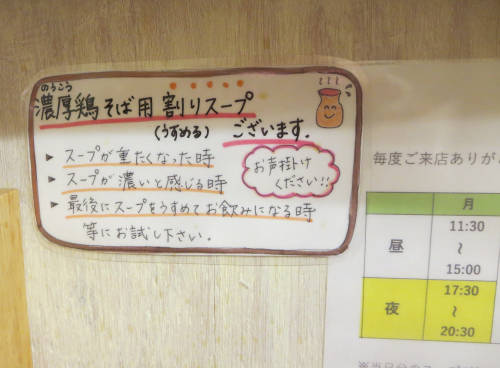 のうこう
濃厚鶏そば用 割りスープ
(うすめる)
ございます.
▶ スープが重たくなった時
▶ スープが濃いと感じる時
▶ 最後にスープをうすめてお飲みになる時
等にお試し下さい.
お声掛け
ください!!
毎度ご来店ありが
月
昼
11:30
~
15:00
夜
17:30
~
20:30